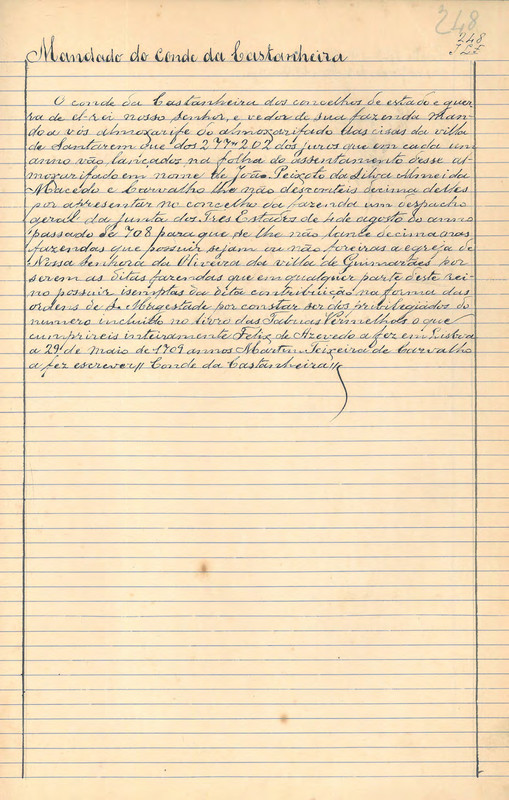 248
248
Mandado do Conde da Castanheira
O conde da Castanheira dos concelhos de estado e guer
ra de el-rei nosso senhor, e vedor de sua fazenda man
do a vós almoxarife do almoxarifado das cisas da villa
de Santarem que dos 277#202 dos juros que em cada um
anno vão lançados na folha do assentamento desse al
moxarifado em nome de João Peixoto da Silva Almeida
Macedo e Carvalho lhe não desconteis decima delles
por apresentar no concelho da fazenda um despacho
geral da junta dos Tres Estados de 4 de agosto do anno
passado de 708 para que se lhe não lance decima nas
fazendas que possuir sejam ou não foreiras a egreja de
Nossa Senhora da Oliveira da villa de Guimarães por
serem as ditas fazendas que em qualquer parte deste rei
no possuir isemptas da dita contribuição na forma das
ordens de S. Magestade por constar ser dos privilegiados do
numero incluido no livro das Tabuas Vermelhas o que
cumprireis inteiramente Felix de Azevedo a fez em Lisboa
a 29 de maio de 1709 annos Martim Teixeira de Carvalho
a fez escrever// Conde da Castanheira//